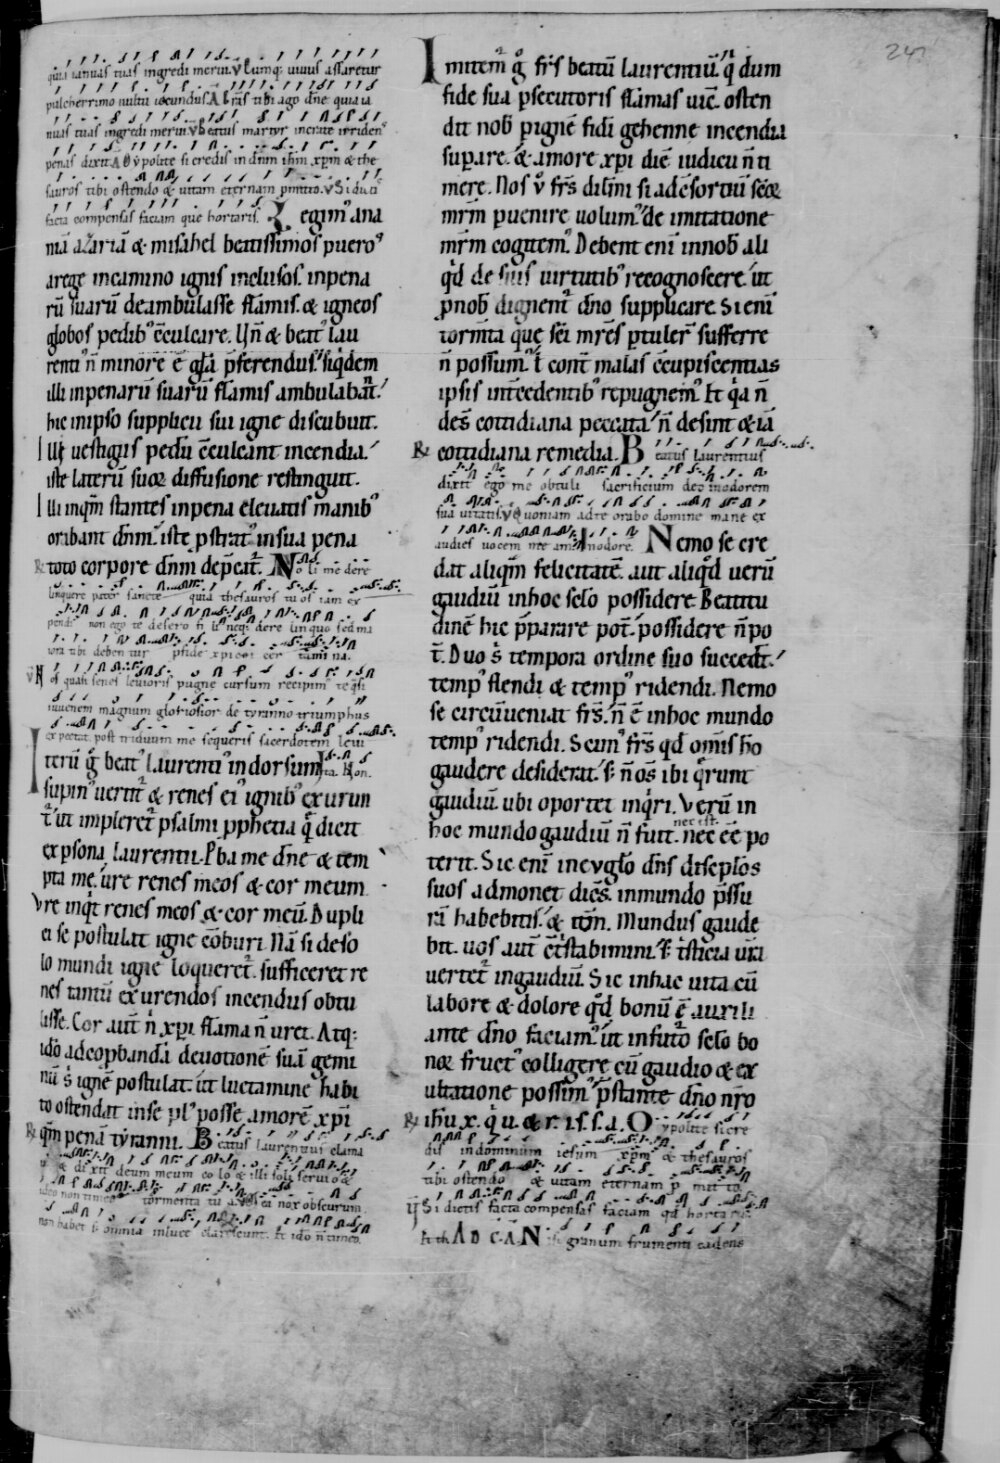 quia ianuas tuas ingredi merui. V̄ Cumq; uiuus assaretur
pulcherrimo uultu iocundus. A Gr̄as tibi ago dn̄e quia ia
nuas tuas ingredi merui. V̄ Beatus martyr inerute irriden̄
penas dixit. A O ypolite si credis in dn̄m ih̄m xp̄m & the
sauros tibi ostendo & uitam eternam p̄mitto. V̄ Si dicti
facta compensas faciam que hortaris. Legim᾽ ana
niā azariā & misahel beatissimos puero᾽
arege incamino ignis inclusos. inpena
rū suarū deambulasse flāmis. & igneos
globos pedib᾽ c̄culcare. Un̄ & beat᾽ lau
renti᾽ n̄ minore ē gl̄a p̄ferendus. siq̇dem
illi inpenarū suarū flāmis ambulabāt.
hic inipso supplicii sui igne discubuit.
Illi uestigiis pedū c̄culcant incendia.
iste laterū suoꝝ diffusione restinguit.
Illi inqm̄ stantes inpena eleuatis manib᾽
orabant dn̄m. iste pstrat᾽ insua pena
R̄ toto corpore dn̄m dep̄cat᷑. Noli me dere
linquere pater sancte quia thesauros tuos iam ex
pendi non ego te desero fili neq; derelinquo sed ma
iora tibi debentur p fide xp̄i certamina.
V̄ Nos quasi senes leuioris pugne cursum recipim᾽ te q̄si
iuuenem magnum gloriosior de tyranno triumphus
expectat. post triduum me sequeris sacerdotem leui
Iterū ḡ beat᾽ laurenti᾽ indorsum ta. Non.
supin᾽ uertit᷑ & renes ei᾽ ignib᾽ exurun
t᷑. ut impleret᷑ psalmi pphetia q̄ dicit
ex psona laurentii. Pba me dn̄e & tem
pta me. ure renes meos & cor meum.
Ure inq̇t renes meos & cor meū. Dupli
ci se postulat igne cōburi. Nā si de so
lo mundi igne loqueret᷑. sufficeret re
nes tantū exurendos incendus obtu
lisse. Cor aut̄ n̄ xp̄i flāma n̄ uret. Atq;
idō adcōpbandā deuotionē suā gemi
nū s̄ ignē postulat. ut luctamine habi
to ostendat inse pl᾽ posse amorē xp̄i
R̄ qm̄ penā tyranni. Beatus laurentius clama
uit & dixit deum meum colo & illi soli seruio &
ideo non timeo tormenta tua. V̄ Mea nox obscurum
non habet s; omnia inluce clarescunt. Et idō n̄ timeo.
Imitem᷑ ḡ fr̄s beatū laurentiū. q̇ dum
fide sua psecutoris flāmas uic̄. osten
dit nob̄ p ignē fidi gehenne incendia
supare. & amore xp̄i diē iudicii n̄ ti
mere. Nos ū fr̄s dil̄mi si adc̄sortiū sc̄oꝝ
mr̄m puenire uolum᾽ de imitatione
mr̄m cogitem᾽. Debent enī innob̄ ali
q̇d de suis uirtutib᾽ recognoscere. ut
p nob̄ dignent᷑ dn̄o supplicare. Si enī
torm̄ta que sc̄i mr̄es ptuler̄ sufferre
n̄ possum᾽. t̄ cont̄ malas c̄cupiscentias
ipsis int̄cedentib᾽ repugnem᾽. Et q̇a n̄
des̄ cottidiana peccata. n̄ desint & iā
R̄ cottidiana remedia. Beatus laurentius
dixit ego me obtuli sacrificium deo inodorem
suauitatis. V̄ Quoniam ad te orabo domine mane ex
audies uocem meam. Inodore. Nemo se cre
dat aliqm̄ felicitatē. aut aliq̇d uerū
gaudiū inhoc sc̄lo possidere. Beatitu
dinē hic p̄parare pot̄. possidere n̄ po
t̄. Duo s̄ tempora ordine suo succed̄t.
temp᾽ flendi & temp᾽ ridendi. Nemo
se circūueniat fr̄s. n̄ ē inhoc mundo
temp᾽ ridendi. Scim᾽ fr̄s qd om̄is ho
gaudere desiderat. s; n̄ om̄s ibi q̄runt
gaudiū. ubi oportet inq̇ri. Verū in
hoc mundo gaudiū n̄ fuit. nec est. nec ēē po
terit. Sic enī ineuglo dn̄s discip̄los
suos admonet dicēs. inmundo p̄ssu
rā habebitis. & itēr̄. Mundus gaude
bit. uos aut̄ c̄tristabimini. s; t̄sticia ur̄a
uertet᷑ ingaudiū. Sic inhac uita cū
labore & dolore q̇d bonū ē auxili
ante dn̄o faciam᾽. ut infut᷑o sc̄lo bo
noꝝ fruct᾽ colligere cū gaudio & ex
ultatione possim᾽ p̄stante dn̄o nr̄o
R̄ ih̄u.x. q̇ u. & r. i. s. s. a. O ypolite si cre
dis in dominum iesum xp̄m & thesauros
tibi ostendo & uitam eternam p mitto.
V̄ Si dictis facta compensas faciam qd hortaris
Et th. AD C. A Nisi granum frumenti cadens